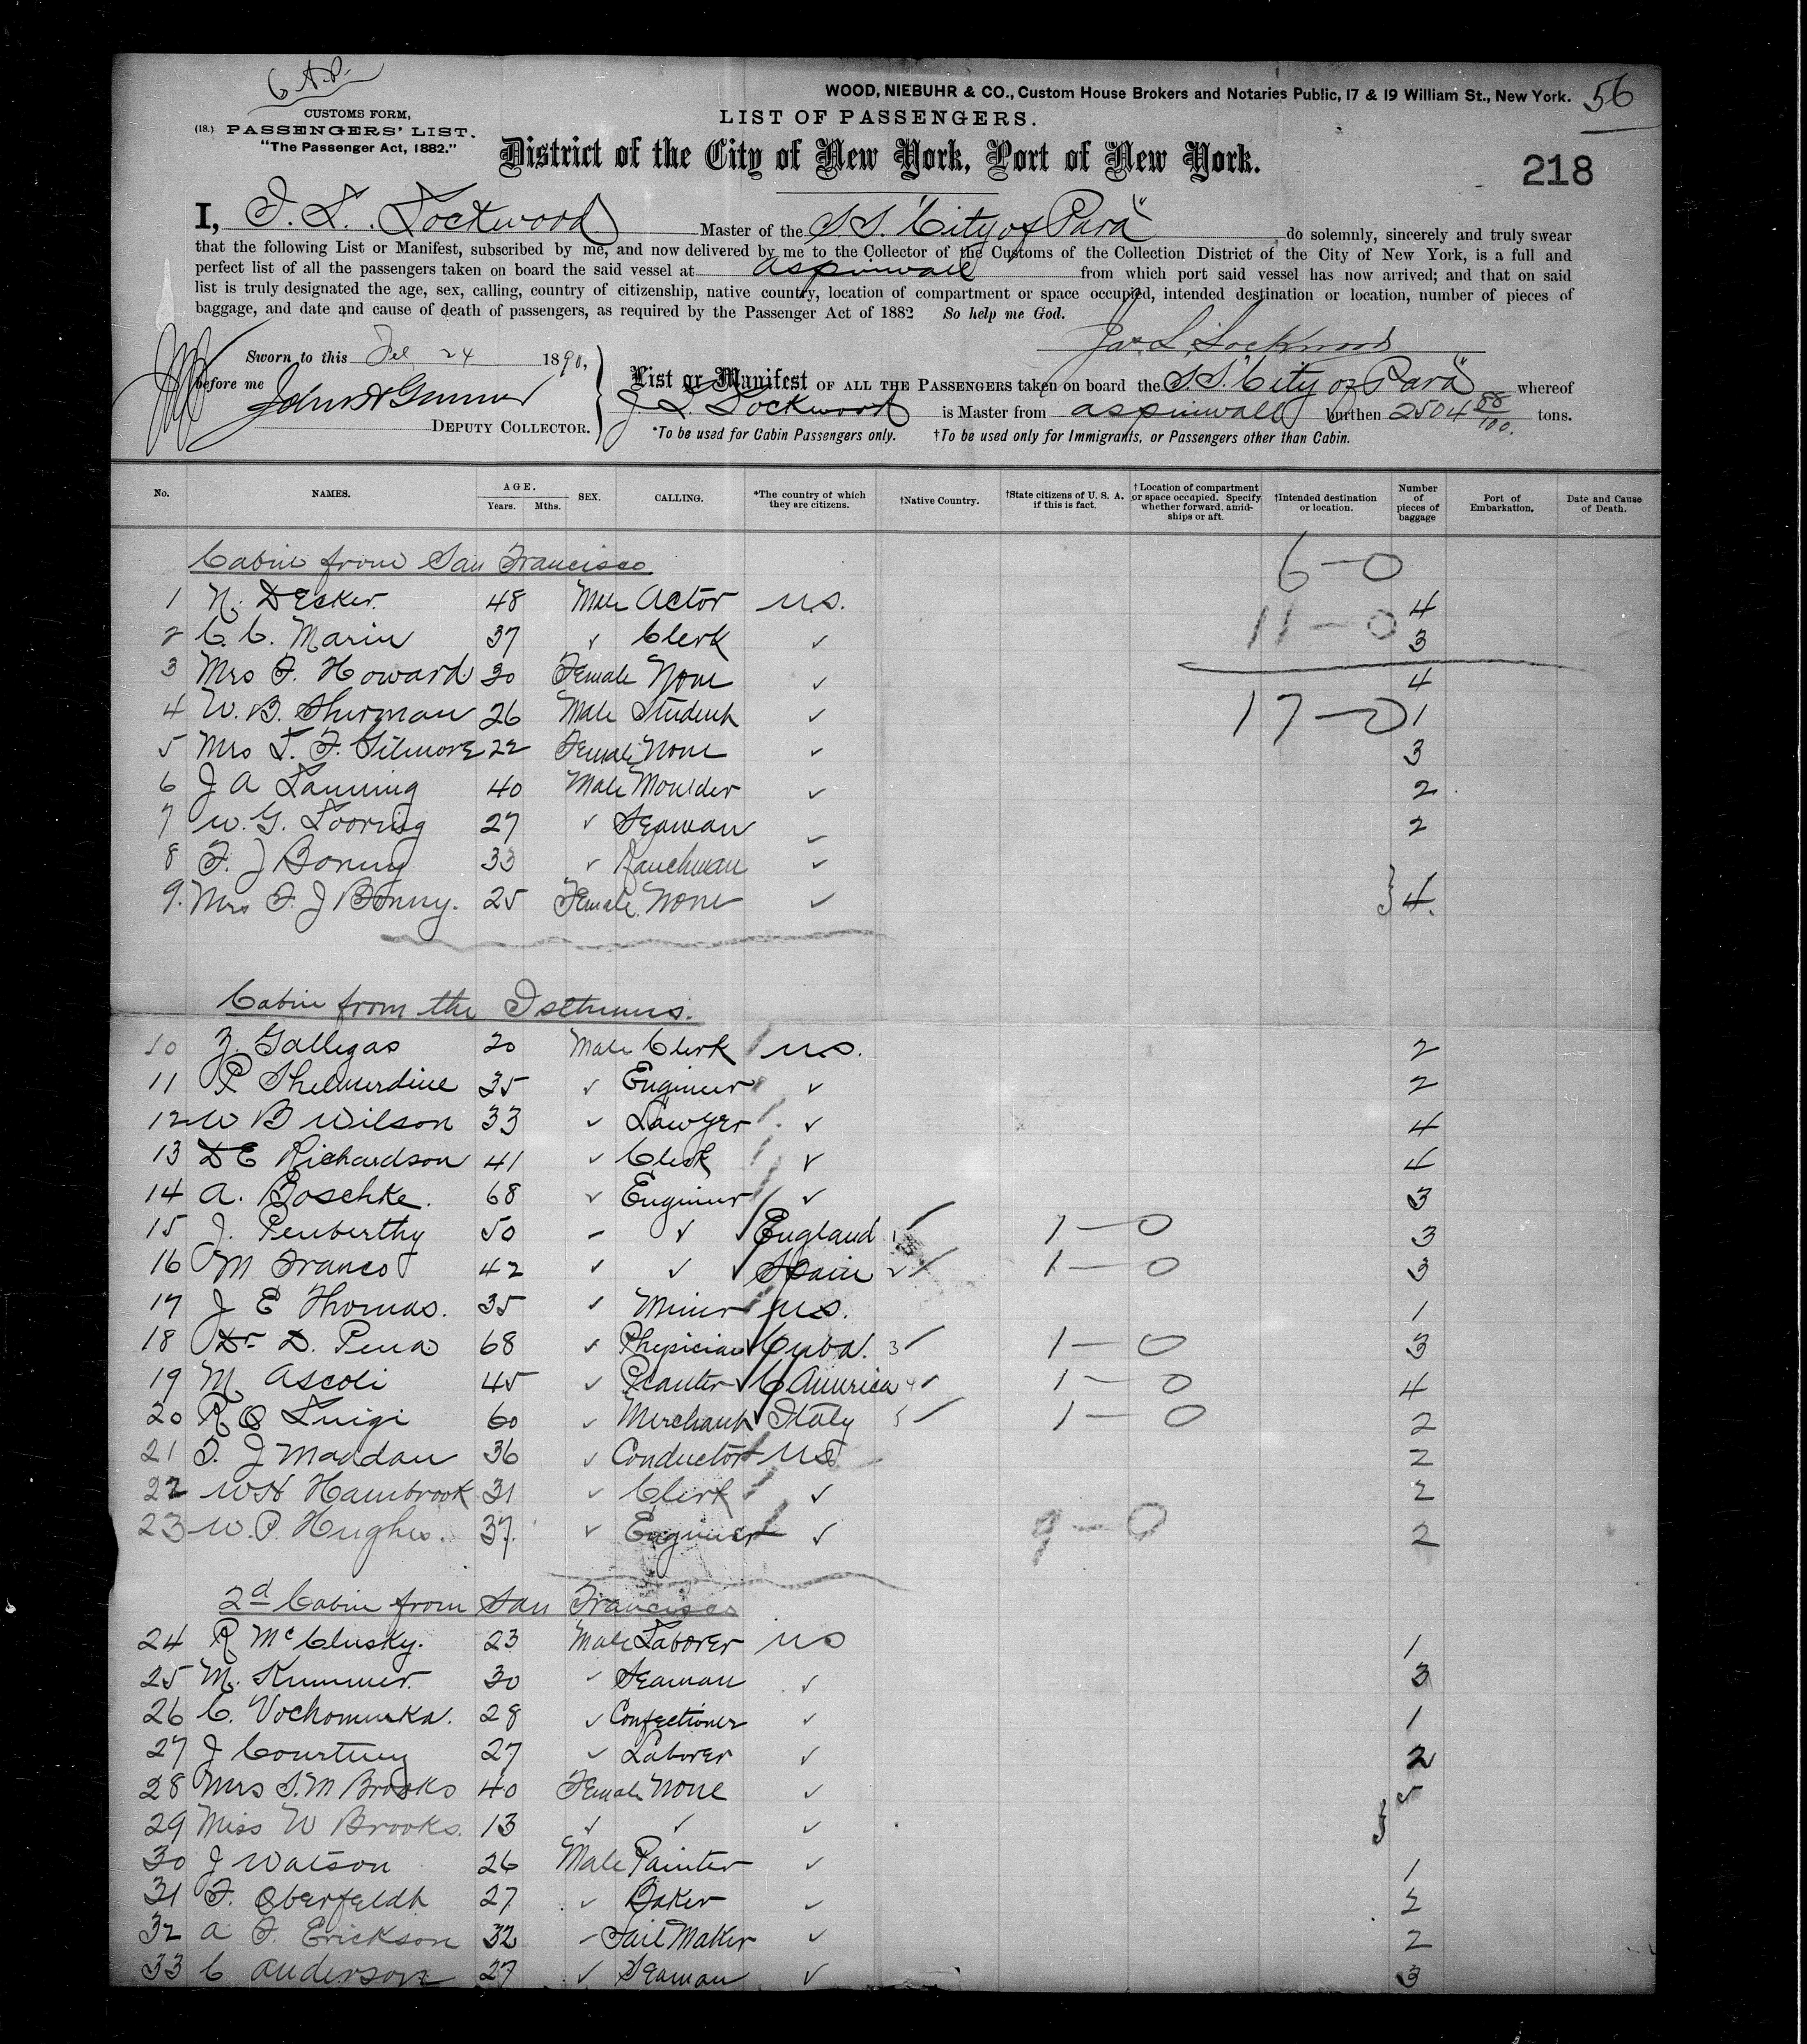 6 A.P.
WOOD, NIEBUHR & CO., Custom House Brokers and Notaries Public, 17 & 19 William St., New York. 56
CUSTOMS FORM,
LIST OF PASSENGERS.
(18.) PASSENGERS' LIST.
"The Passenger Act, 1882."
District of the City of New York, Port of New York.
218
I, J. L. Lockwood Master of the S.S. "City of Para" do solemnly, sincerely and truly swear
that the following List or Manifest, subscribed by me, and now delivered by me to the Collector of the Customs of the Collection District of the City of New York, is a full and
perfect list of all the passengers taken on board the said vessel at aspinwall from which port said vessel has now arrived; and that on said
list is truly designated the age, sex, calling, country of citizenship, native country, location of compartment or space occupied, intended destination or location, number of pieces of
baggage, and date and cause of death of passengers, as required by the Passenger Act of 1882 So help me God.
Jas. L. Lockwood
Sworn to this 24 1890,
before me
DEPUTY COLLECTOR.
List or Manifest OF ALL THE PASSENGERS taken on board the S.S. "City of Para" whereof
J L Lockwood is Master from aspinwall burthen 2504 88/100 tons.
*To be used for Cabin Passengers only. †To be used only for Immigrants, or Passengers other than Cabin.
No. NAMES. AGE. Years. Mths. SEX. CALLING. *The country of which they are citizens. †Native Country. †State citizens of U. S. A. if this is fact. †Location of compartment or space occupied. Specify whether forward, amidships or aft. †Intended destination or location. Number of pieces of baggage Port of Embarkation. Date and Cause of Death.
Cabin from San Francisco 6-0
1 N. Decker. 48 Male Actor U.S. 4
11-0
2 C. C. Marin 37 ✓ Clerk ✓ 3
3 Mrs F. Howard 30 Female None ✓ 4
4 W. B. Sherman 26 Male Student ✓ 17-0 1
5 Mrs L. F. Gilmore 22 Female None ✓ 3
6 J A Lanning 40 Male Moulder ✓ 2
7 W. G. Looring 27 ✓ Seaman ✓ 2
8 F. J Bonny 33 ✓ Ranchman ✓
9. Mrs F. J Bonny. 25 Female None ✓ } 4.
Cabin from the Isthmus.
10 Z. Gallegas 20 Male Clerk US. 2
11 P Shelmerdine 35 ✓ Engineer ✓ 2
12 W B Wilson 33 ✓ Lawyer ✓ 4
13 D E Richardson 41 ✓ Clerk ✓ 4
14 A. Boschke. 68 ✓ Engineer ✓ 3
15 J. Penberthy 50 ✓ ✓ England 1 ✓ 1-0 3
16 M Franco 42 ✓ ✓ Spain 2 ✓ 1-0 3
17 J E Thomas. 35 ✓ Miner US. 1
18 Dr D. Pena 68 ✓ Physician Cuba. 3 ✓ 1-0 3
19 M Ascoli 45 ✓ Planter C America 4 ✓ 1-0 4
20 R Q Luigi 60 ✓ Merchant Italy 5 ✓ 1-0 2
21 T. J Maddan 36 ✓ Conductor US 2
22 W H Hambrook 31 ✓ Clerk ✓ 2
23 W. P. Hughes. 37. ✓ Engineer ✓ 9-0 2
2d Cabin from San Francisco
24 R McClusky. 23 Male Laborer US 1
25 M. Kummer. 30 ✓ Seaman ✓ 3
26 C. Vochomuska. 28 ✓ Confectioner ✓ 1
27 J Courtney 27 ✓ Laborer ✓ 2
28 Mrs S. M Brooks 40 Female None ✓ 5
29 Miss W Brooks. 13 ✓ ✓ ✓ }
30 J Watson 26 Male Painter ✓ 1
31 F. Oberfeldt 27 ✓ Baker ✓ 2
32 A F. Erickson 32 ✓ Sail Maker ✓ 2
33 C Anderson 27 ✓ Seaman ✓ 3